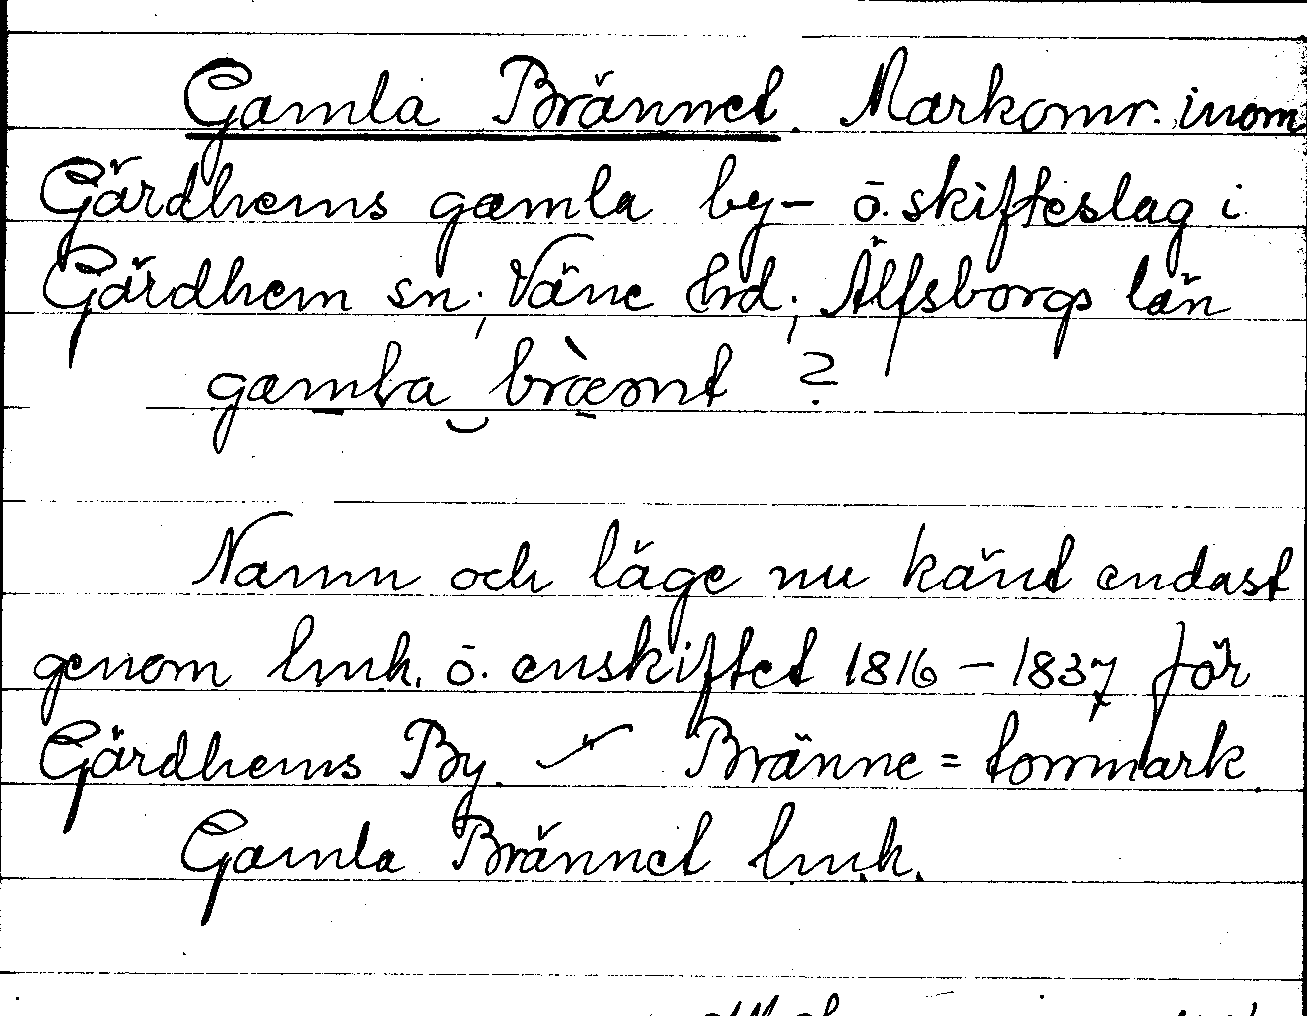 Gamla Brännet. Markomr. inom
Gärdhems gamla by- ö. skifteslag i
Gärdhem sn; Väne hrd; Älfsborgs län
gamla bræ̀nt ?
Namn och läge nu känt endast
genom lmh. ö. enskiftet 1816 – 1837 för
Gärdhems By. –"– Bränne = tommark.
Gamla Brännet lmh.